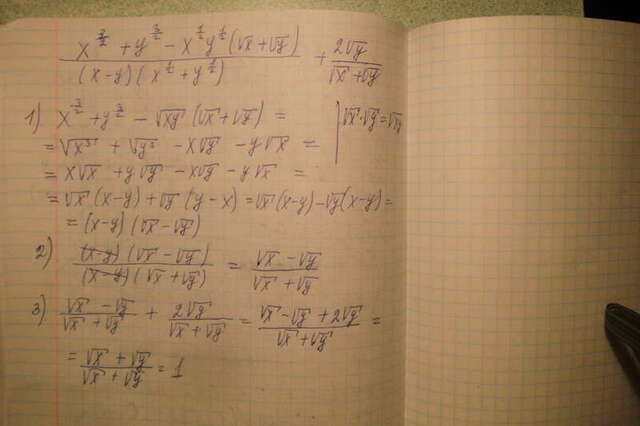 (x^{3/2} + y^{3/2} - x^{1/2}y^{1/2}(√x+√y)) / ((x-y)(x^{1/2}+y^{1/2})) + 2√y / (√x+√y)
1) x^{3/2} + y^{3/2} - √xy (√x+√y) = | √x·√y = √xy
= √x³ + √y³ - x√y - y√x =
= x√x + y√y - x√y - y√x =
= √x (x-y) + √y (y-x) = √x(x-y) - √y(x-y) =
= (x-y)(√x-√y)
2) (x-y)(√x-√y) / ((x-y)(√x+√y)) = (√x-√y) / (√x+√y)
3) (√x-√y) / (√x+√y) + 2√y / (√x+√y) = (√x-√y+2√y) / (√x+√y) =
= (√x+√y) / (√x+√y) = 1